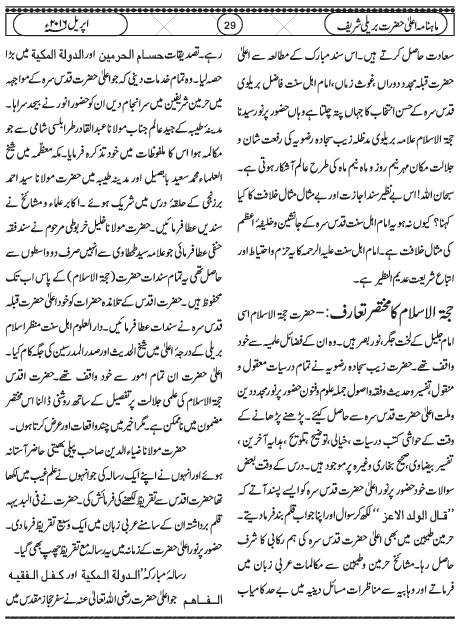 ماہنامہ اعلیٰ حضرت بریلی شریف
29
اپریل ۲۰۱۶ء
سعادت حاصل کرتے ہیں۔ اس سند مبارک کے مطالعہ سے اعلیٰ
حضرت قبلہ مجدد دوراں، غوث زماں، امام اہل سنت فاضل بریلوی
قدس سرہ کے حسن انتخاب کا جہاں پتہ چلتا ہے وہاں حضور پر نور سیدنا
حجۃ الاسلام علامہ بریلوی مدظلہ زیب سجادہ رضویہ کی رفعت شان و
جلالت مکان مہر نیم روز و ماہ نیم ماہ کی طرح عالم آشکار ہوتی ہے۔
سبحان اللہ! اس بے نظیر سند اجازت اور بے مثال مثال خلافت کا کیا
کہنا؟ کیوں نہ ہو یہ امام اہل سنت قدس سرہ کے جانشین و خلیفۂ اعظم
کی مثال خلافت ہے۔ امام اہل سنت علیہ الرحمہ کا یہ حزم و احتیاط اور
اتباع شریعت عدیم النظیر ہے۔
حجۃ الاسلام کا مختصر تعارف:– حضرت حجۃ الاسلام اسی
امام جلیل کے لخت جگر، نور بصر ہیں۔ وہ ان کے فضائل علمیہ سے خود
واقف تھے۔ حضرت زیب سجادہ رضویہ نے تمام درسیات معقول و
منقول، تفسیر وحدیث وفقہ واصول جملہ علوم وفنون حضور پر نور مجدد دین
وملت اعلیٰ حضرت قدس سرہ سے حاصل کئے۔ پڑھنے پڑھانے کے
وقت کے حواشی کتب درسیات، خیالی، توضیح تلویح، ہدایہ آخرین،
تفسیر بیضاوی، صحیح بخاری وغیرہ پر موجود ہیں۔ درس کے وقت بعض
سوالات خود حضور پر نور اعلیٰ حضرت قدس سرہ کو ایسے پسند آتے کہ
"قال الولد الاعز" لکھ کر سوال اور اپنا جواب قلم بند فرما دیتے۔
حرمین طیبین میں بھی اعلیٰ حضرت قدس سرہ کی ہم رکابی کا شرف
حاصل رہا۔ مشائخ حرمین وطیبین سے مکالمات عربی زبان میں
ہوتے رہے اور وہابیہ سے مناظرات مسائل دینیہ میں بے حد کامیاب
رہے۔ تصدیقات حسام الحرمین اور الدولۃ المکیۃ میں بڑا
حصہ لیا۔ وہ تمام خدمات دینی کہ جو اعلیٰ حضرت قدس سرہ کے مواجہہ
میں حرمین شریفین میں سرانجام دیں ان کو حضور انور نے بیحد سراہا۔
مدینۂ طیبہ کے جید عالم جناب مولانا عبدالقادر طرابلسی شامی سے جو
مکالمہ ہوا اس کا ملفوظات میں خود تذکرہ فرمایا۔ مکہ معظمہ میں شیخ
العلماء محمد سعید بابصیل اور مدینہ طیبہ میں حضرت مولانا سید احمد
برزنجی کے حلقۂ درس میں شریک ہوئے۔ اکابر علماء و مشائخ نے
سندیں عطا فرمائیں۔ حضرت مولانا خلیل خربوطی مرحوم نے سند فقہ
حنفی عطا فرمائی جو علامہ سید طحطاوی سے انہیں صرف دو واسطوں سے
حاصل تھی یہ تمام سندات حضرت (حجۃ الاسلام) کے پاس اب تک
محفوظ ہیں۔ حضرت اقدس کے تلامذہ حضرات کو خود اعلیٰ حضرت قبلہ
قدس سرہ نے سندات عطا فرمائیں۔ دار العلوم اہل سنت منظر اسلام
بریلی کے درجۂ اعلیٰ میں شیخ الحدیث اور صدر المدرسین کی جگہ کام کیا۔
اعلیٰ حضرت ان تمام امور سے خود واقف تھے۔ حضرت اقدس
حجۃ الاسلام کی علمی جلالت پر تفصیل کے ساتھ روشنی ڈالنا اس مختصر
مضمون میں ناممکن ہے۔ مگر اخیر میں چند واقعات اور عرض کرتا ہوں۔
حضرت مولانا ضیاء الدین صاحب پیلی بھیتی حاضر آستانہ
ہوئے اور انہوں نے اپنے ایک رسالہ کی جو انہوں نے علم غیب میں لکھا
تھا حضرت اقدس سے تقریظ لکھنے کی فرمائش کی۔ حضرت نے فی البدیہہ
قلم برداشتہ ان کے سامنے عربی زبان میں ایک وسیع تقریظ فرما دی۔
حضور پر نور اعلیٰ حضرت کے زمانہ میں یہ رسالہ مع تقریظ چھپ بھی گیا۔
رسالہ مبارکہ "الدولۃ المکیۃ اور کفل الفقیہ
الفاہم جو اعلیٰ حضرت رضی اللہ تعالیٰ عنہ نے سفر حجاز مقدس میں